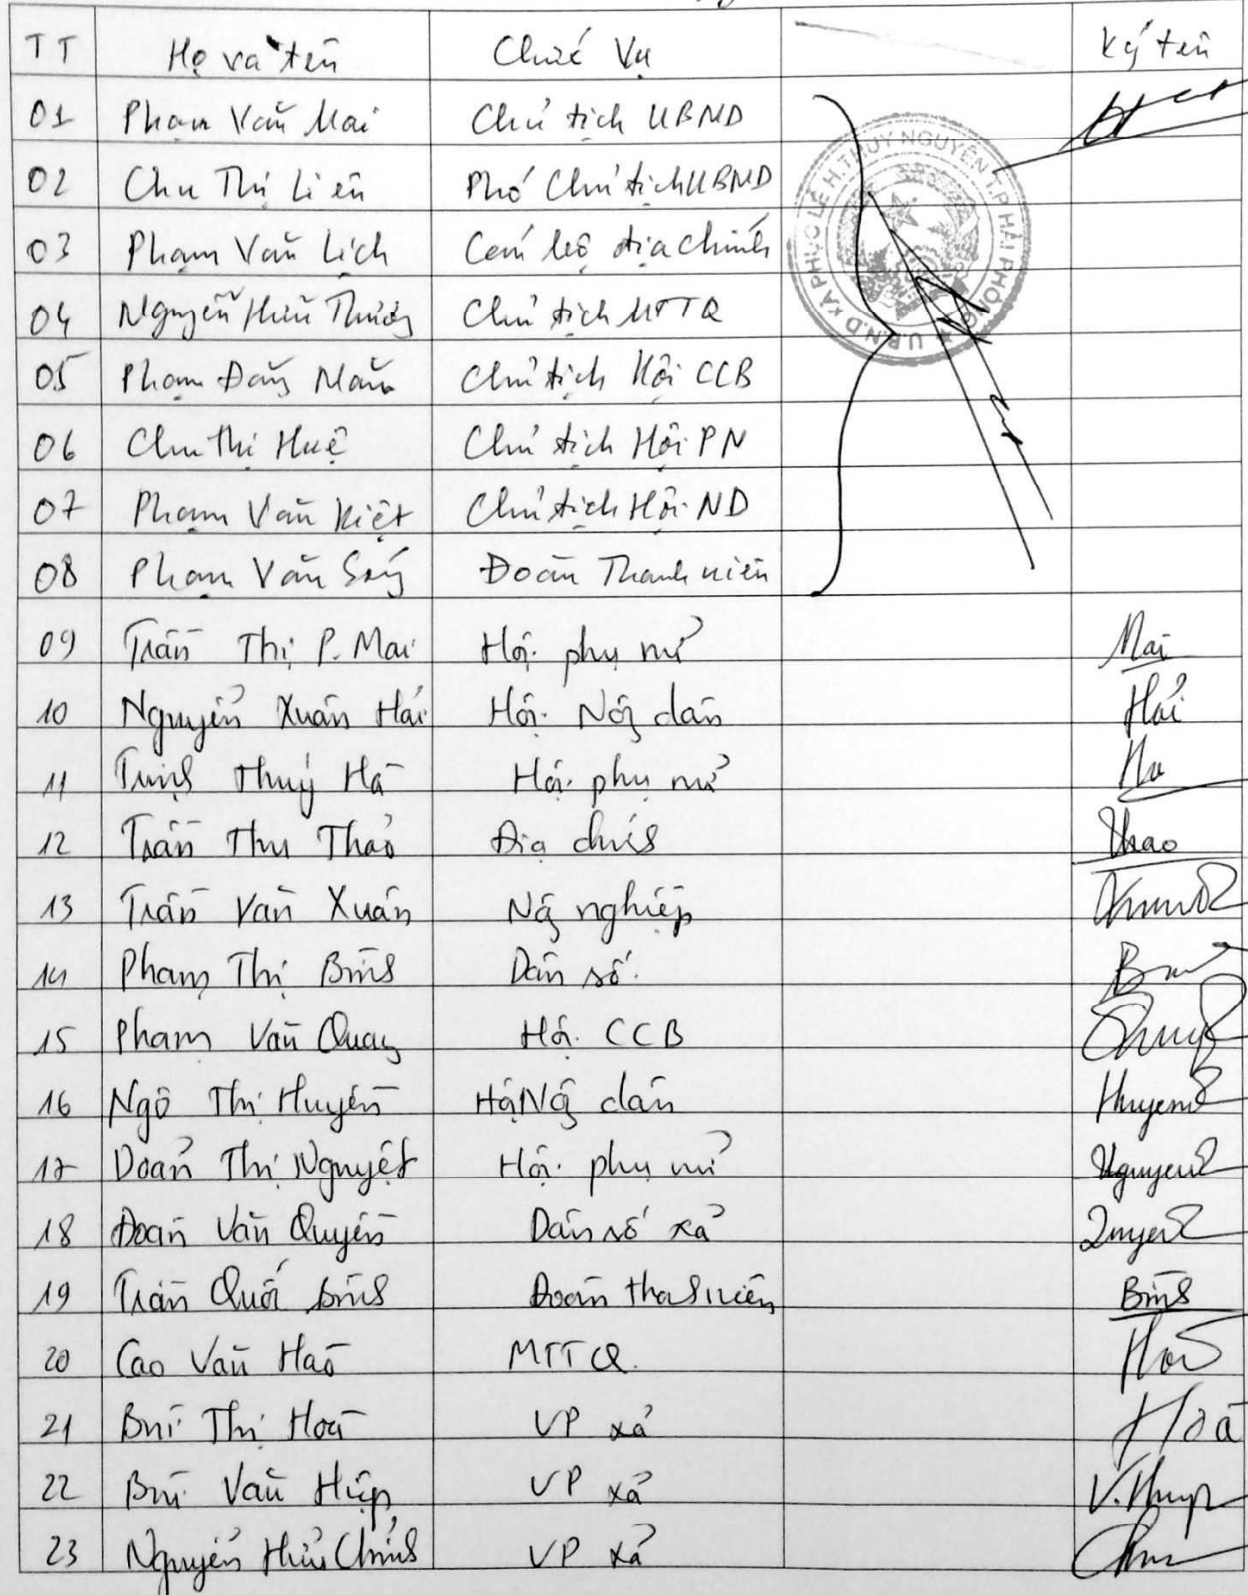 TT Họ và tên Chức Vụ Ký tên
01 Phạm Văn Mai Chủ tịch UBND
02 Chu Thị Liên Phó Chủ tịch UBND
03 Phạm Văn Lịch Cán bộ địa chính
04 Nguyễn Hữu Chủ tịch MTTQ
05 Phạm Đăng Chủ tịch Hội CCB
06 Chu Thị Huệ Chủ tịch Hội PN
07 Phạm Văn Kiệt Chủ tịch Hội ND
08 Phạm Văn Đoàn Thanh niên
09 Trần Thị P. Mai Hội phụ nữ Mai
10 Nguyễn Xuân Hải Hội Nông dân Hải
11 Trịnh Thuý Hà Hội phụ nữ
12 Trần Thu Thảo Địa chính Thao
13 Trần Văn Xuân Nông nghiệp
14 Phạm Thị Bình Dân số
15 Phạm Văn Quang Hội CCB
16 Ngô Thị Huyền Hội Nông dân Huyền
17 Doãn Thị Nguyệt Hội phụ nữ
18 Đoàn Văn Quyền Dân số xã Quyen
19 Trần Quốc Bình Đoàn thanh niên Bình
20 Cao Văn Hào MTTQ
21 Bùi Thị Hoà VP xã Hoà
22 Bùi Văn Hiệp VP xã
23 Nguyễn Hữu Chính VP xã
U.B.N.D XÃ PHỤC LỄ H. THUỶ NGUYÊN T.P HẢI PHÒNG